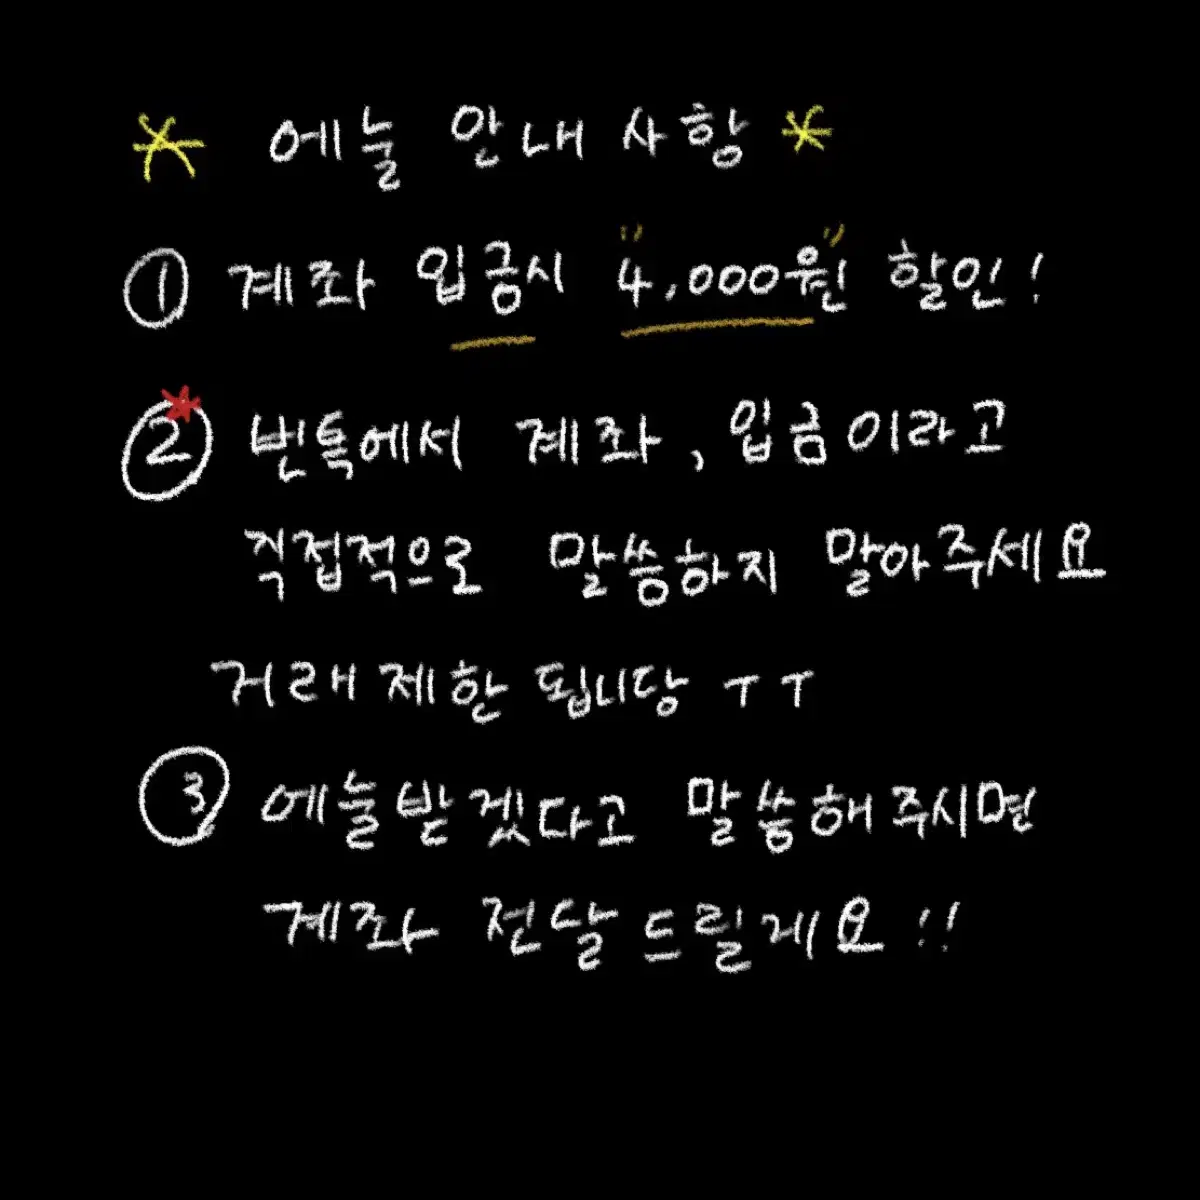 * 에눌 안내 사항 *
① 계좌 입금시 "4,000원" 할인!
② 번톡에서 계좌, 입금이라고
직접적으로 말씀하지 말아주세요
거래 제한 됩니당 ㅜㅜ
③ 에눌받겠다고 말씀해주시면
계좌 전달 드릴게요!!